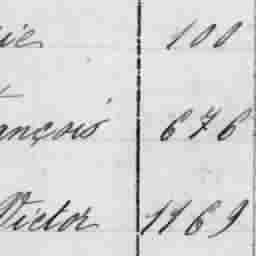 100
ançois 676
Victor 1169